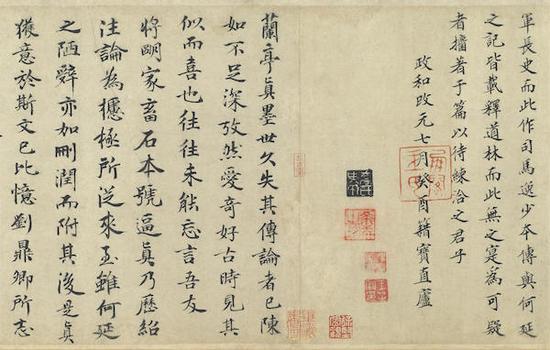 軍長史而此作司馬逸少本傳與何延
之記皆載釋道林而此無之寔為可疑
者擂著于篇以待練洽之君乎
政和改元七月癸酉籍寶直廬
蘭亭真墨世久失其傳論者已陳
如不足深攷然愛奇好古時見其
似而喜也往往未能忘言吾友
將明家畜石本號逼真乃歷紹
注論為攄極所從來至雖何延
之陋辭亦如刪潤而附其後是真
獲意於斯文已比憶劉鼎卿所志